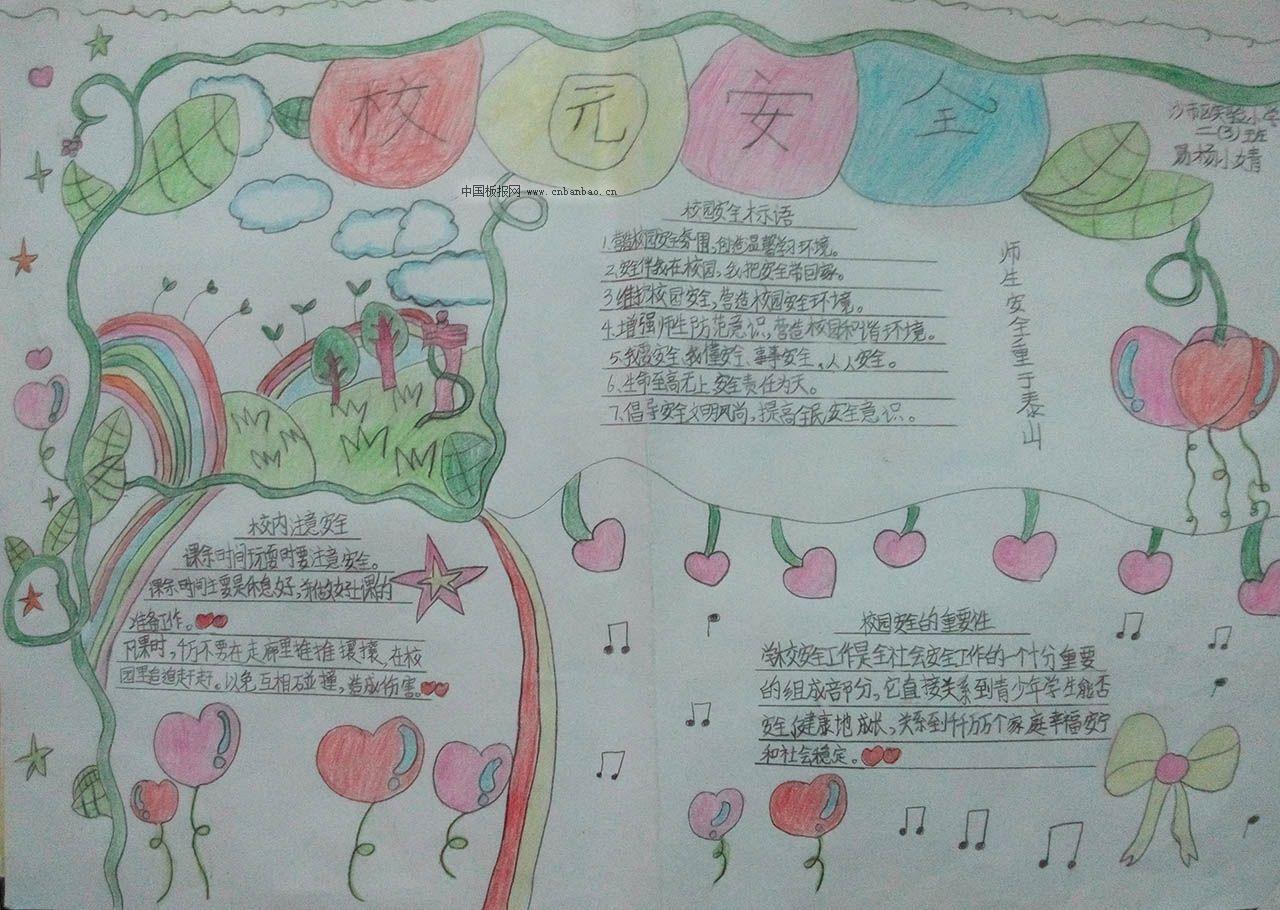 校园安全
中国板报网 www.cnbanbao.cn
沙市区实验小学
二(3)班
易杨小婧
校园安全标语
1.营造校园安全氛围,创造温馨学习环境。
2.安全伴我在校园,我把安全带回家。
3.维护校园安全,营造校园安全环境。
4.增强师生防范意识,营造校园和谐环境。
5.我要安全、我懂安全、事事安全、人人安全。
6.生命至高无上,安全责任为天。
7.倡导安全文明风尚,提高全民安全意识。
师生安全重于泰山
校内注意安全
课余时间玩耍时要注意安全。
课余时间主要是休息好,并做好上课的
准备工作。
下课时,千万不要在走廊里推推攘攘,在校
园里追追赶赶。以免互相碰撞,造成伤害。
校园安全的重要性
学校安全工作是全社会安全工作的一个十分重要
的组成部分,它直接关系到青少年学生能否
安全、健康地成长,关系到千千万万个家庭幸福安宁
和社会稳定。